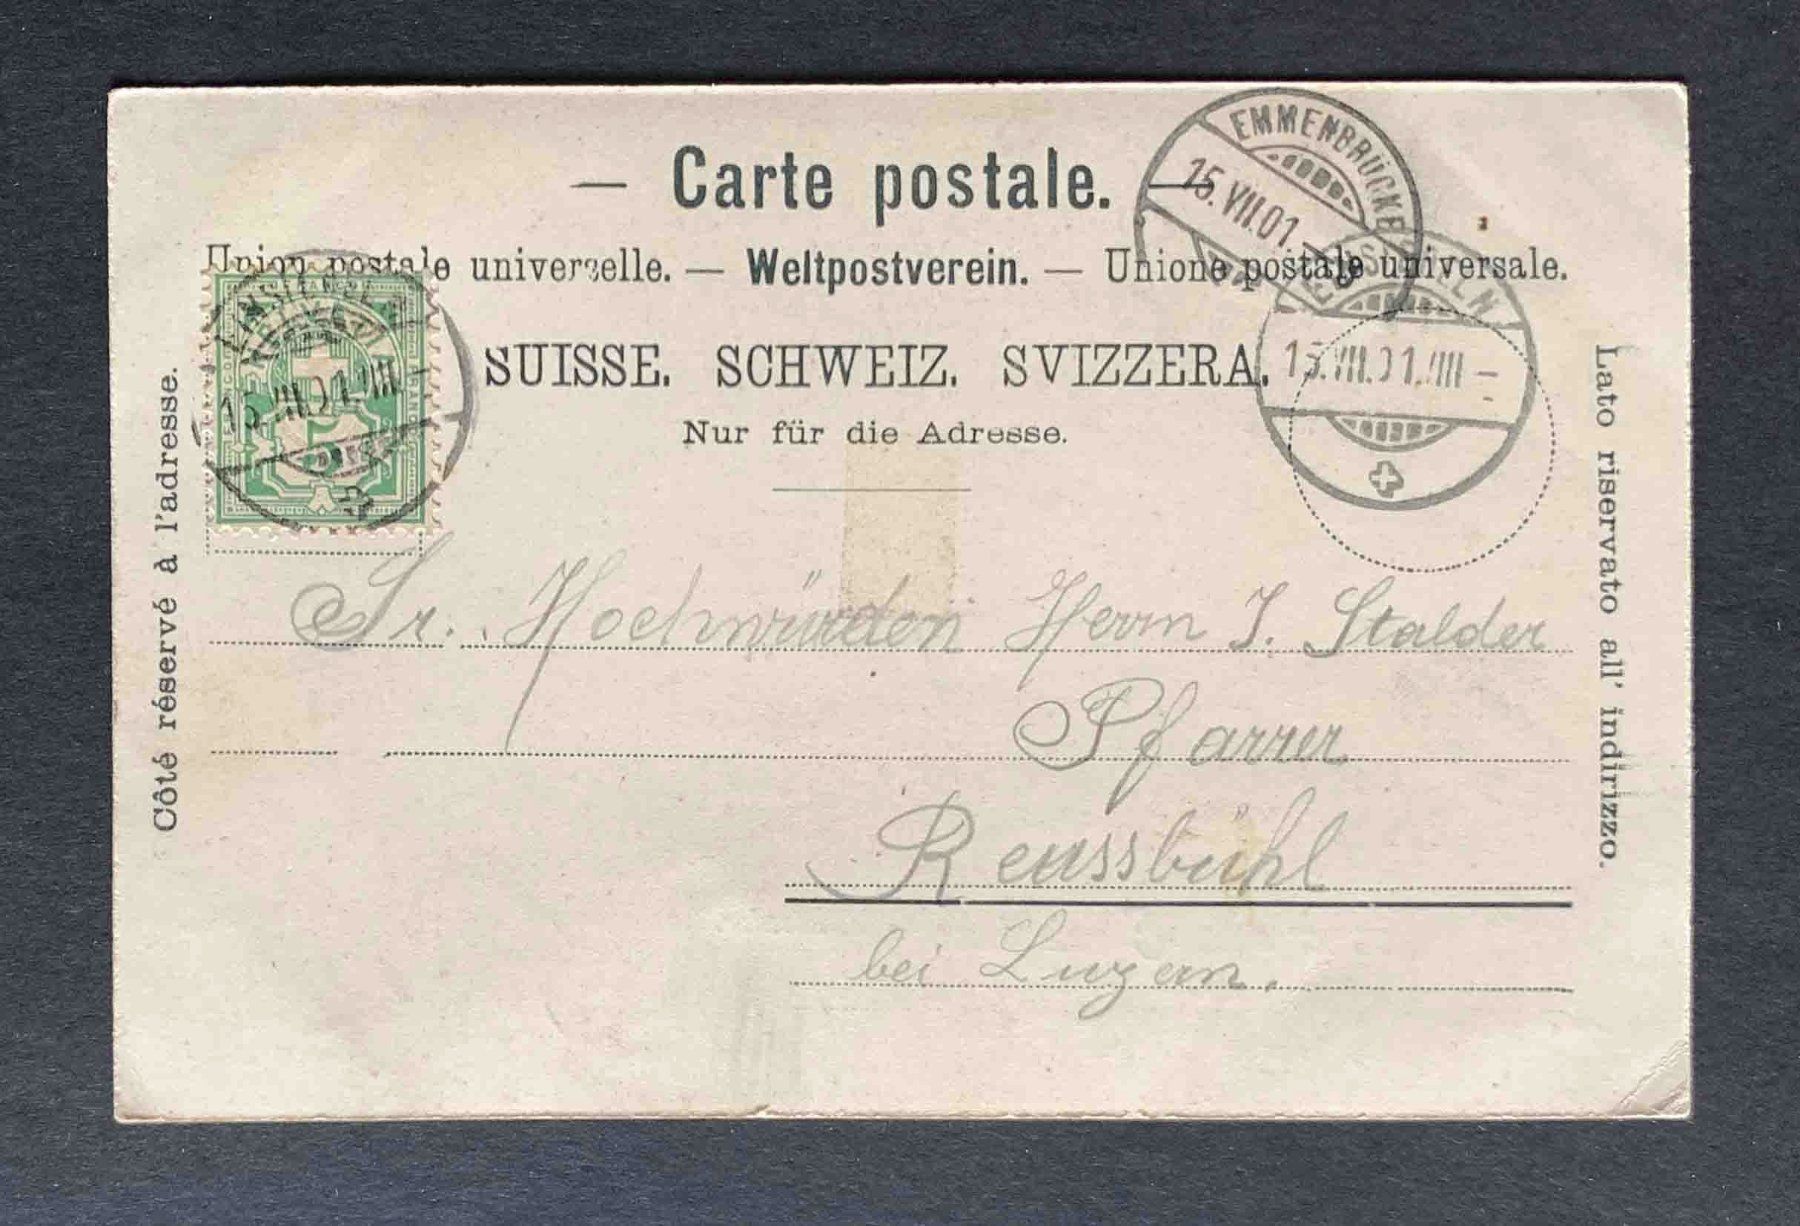 — Carte postale. —
Union postale universelle. — Weltpostverein. — Unione postale universale.
SUISSE. SCHWEIZ. SVIZZERA.
Nur für die Adresse.
Côté réservé à l'adresse.
Lato riservato all' indirizzo.
EMMENBRÜCKE
15.VII.01.
EINSIEDELN
15.VII.01.VIII –
EINSIEDELN
15.VII.01.VIII
FRANCO
5
Sr. Hochwürden Herrn J. Stalder
Pfarrer
Reussbühl
bei Luzern.